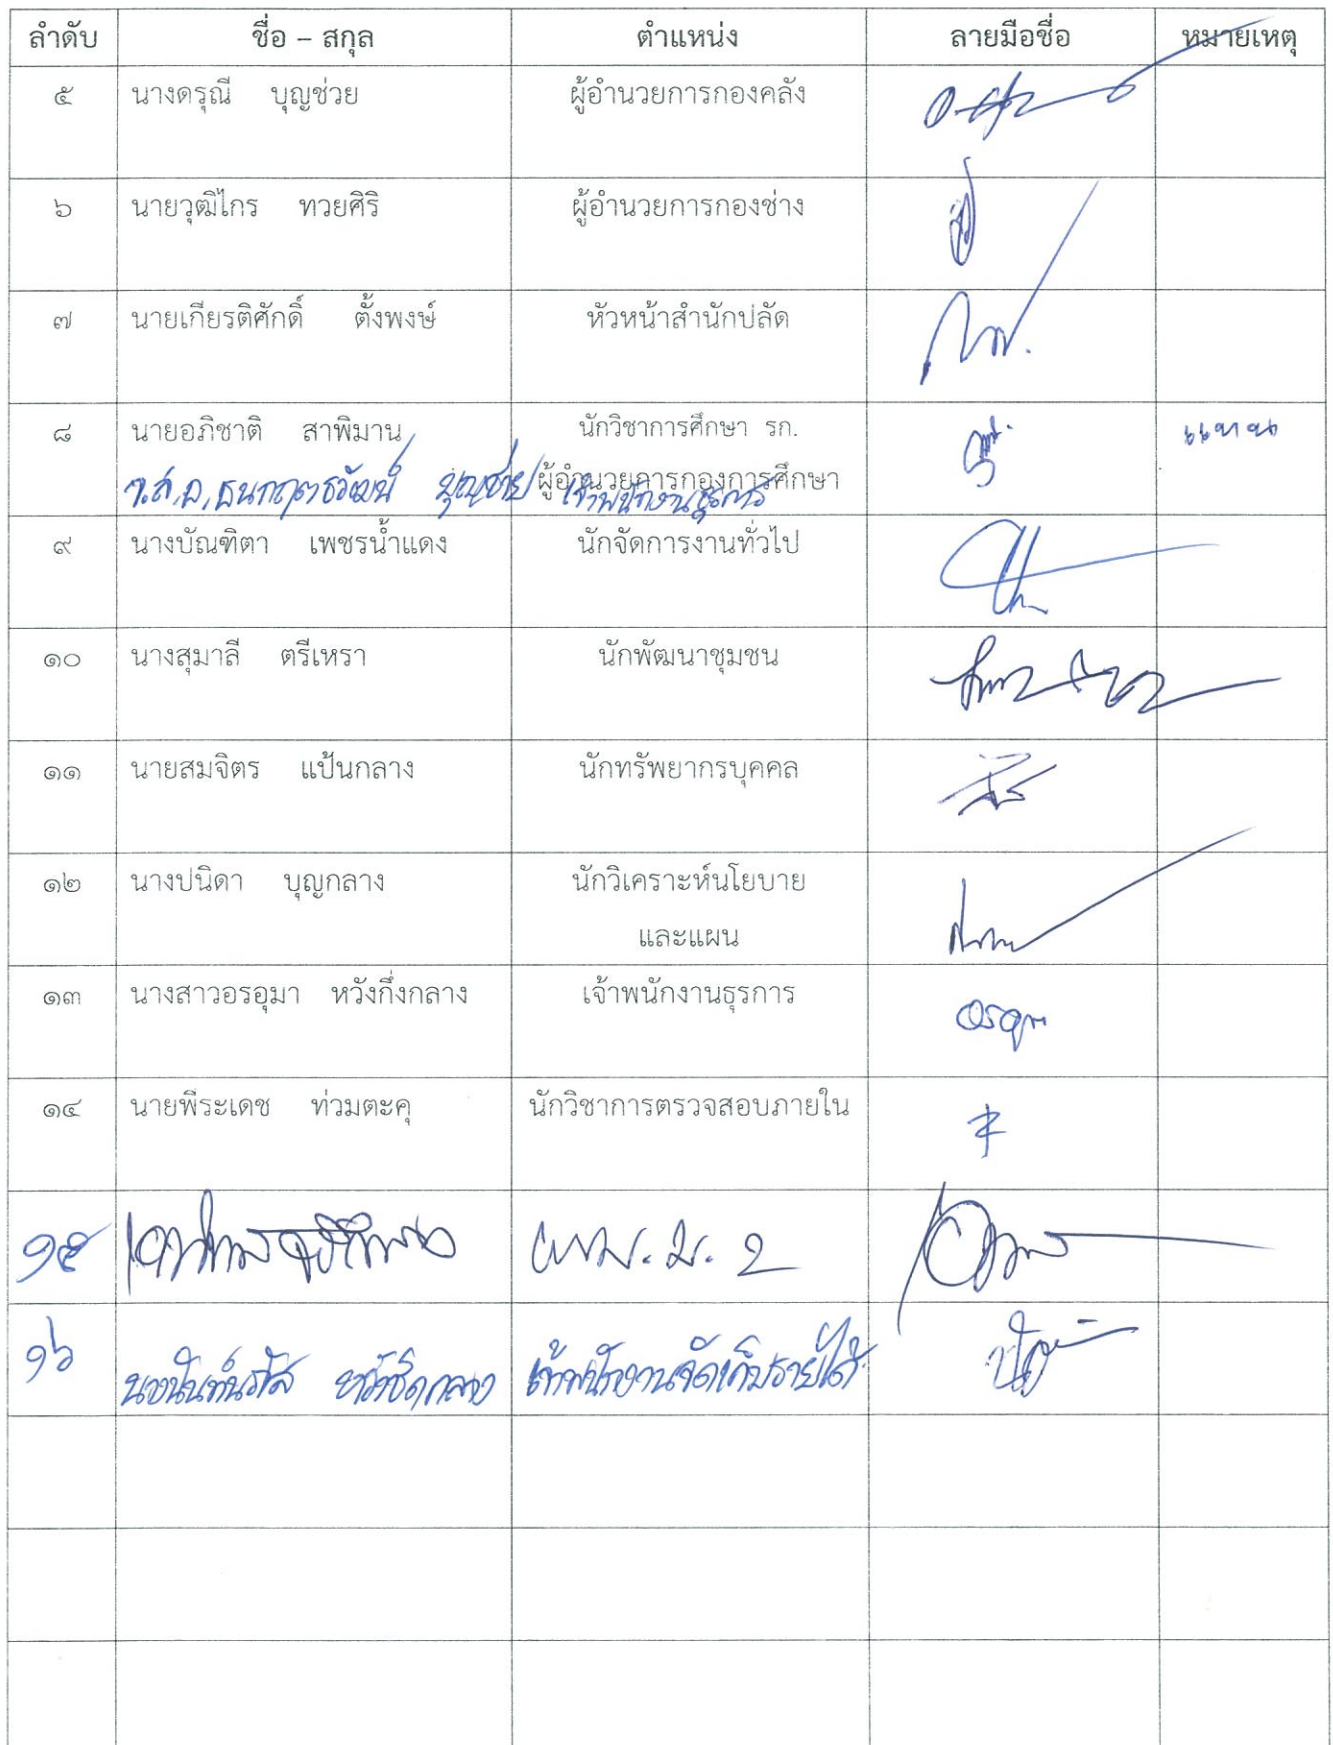 ลำดับ ชื่อ – สกุล ตำแหน่ง ลายมือชื่อ หมายเหตุ
๕ นางดรุณี บุญช่วย ผู้อำนวยการกองคลัง
๖ นายวุฒิไกร ทวยศิริ ผู้อำนวยการกองช่าง
๗ นายเกียรติศักดิ์ ตั้งพงษ์ หัวหน้าสำนักปลัด
๘ นายอภิชาติ สาพิมาน นักวิชาการศึกษา รก. แทน
จ.ส.อ. ธนกฤตธวัฒน์ บุญช่วย ผู้อำนวยการกองการศึกษา เจ้าพนักงานธุรการ
๙ นางบัณฑิตา เพชรน้ำแดง นักจัดการงานทั่วไป
๑๐ นางสุมาลี ตรีเหรา นักพัฒนาชุมชน
๑๑ นายสมจิตร แป้นกลาง นักทรัพยากรบุคคล
๑๒ นางปนิดา บุญกลาง นักวิเคราะห์นโยบาย
และแผน
๑๓ นางสาวอรอุมา หวังกึ่งกลาง เจ้าพนักงานธุรการ อรอุมา
๑๔ นายพีระเดช ท่วมตะคุ นักวิชาการตรวจสอบภายใน
๑๕ ม. 2
๑๖ เจ้าพนักงานจัดเก็บรายได้